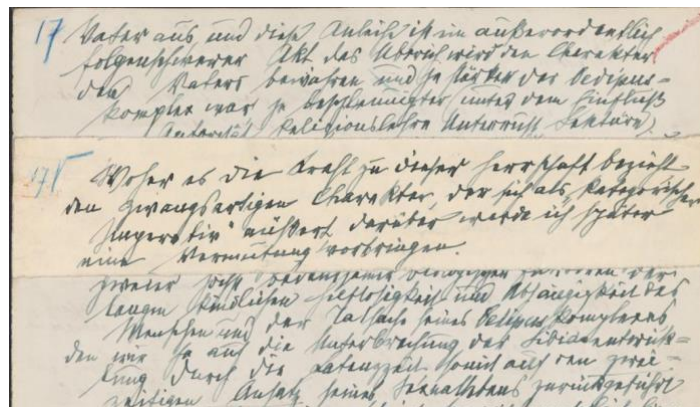 17 Vater aus und diese Anleihe ist ein außerordentlich
folgenschwerer Akt das Überich wird den Charakter
des Vaters bewahren und je stärker der Oedipus-
komplex war je beschleunigter (unter dem Einfluß
Autorität Religionslehre Unterricht Lektüre)
17 Woher es die Kraft zu dieser Herrschaft bezieht
den zwangsartigen Charakter, der sich als „kategorischer
Imperativ" äußert darüber werde ich später
eine Vermutung vorbringen.
zweier höchst bedeutsamer der
langen kindlichen Hilflosigkeit und Abhängigkeit des
Menschen und der Tatsache seines Oedipuskomplexes
den wir ja auf die Unterbrechung der Libidoentwick-
lung durch die Latenzzeit somit auf den zwei-
zeitigen Ansatz seines Sexuallebens zurückgeführt